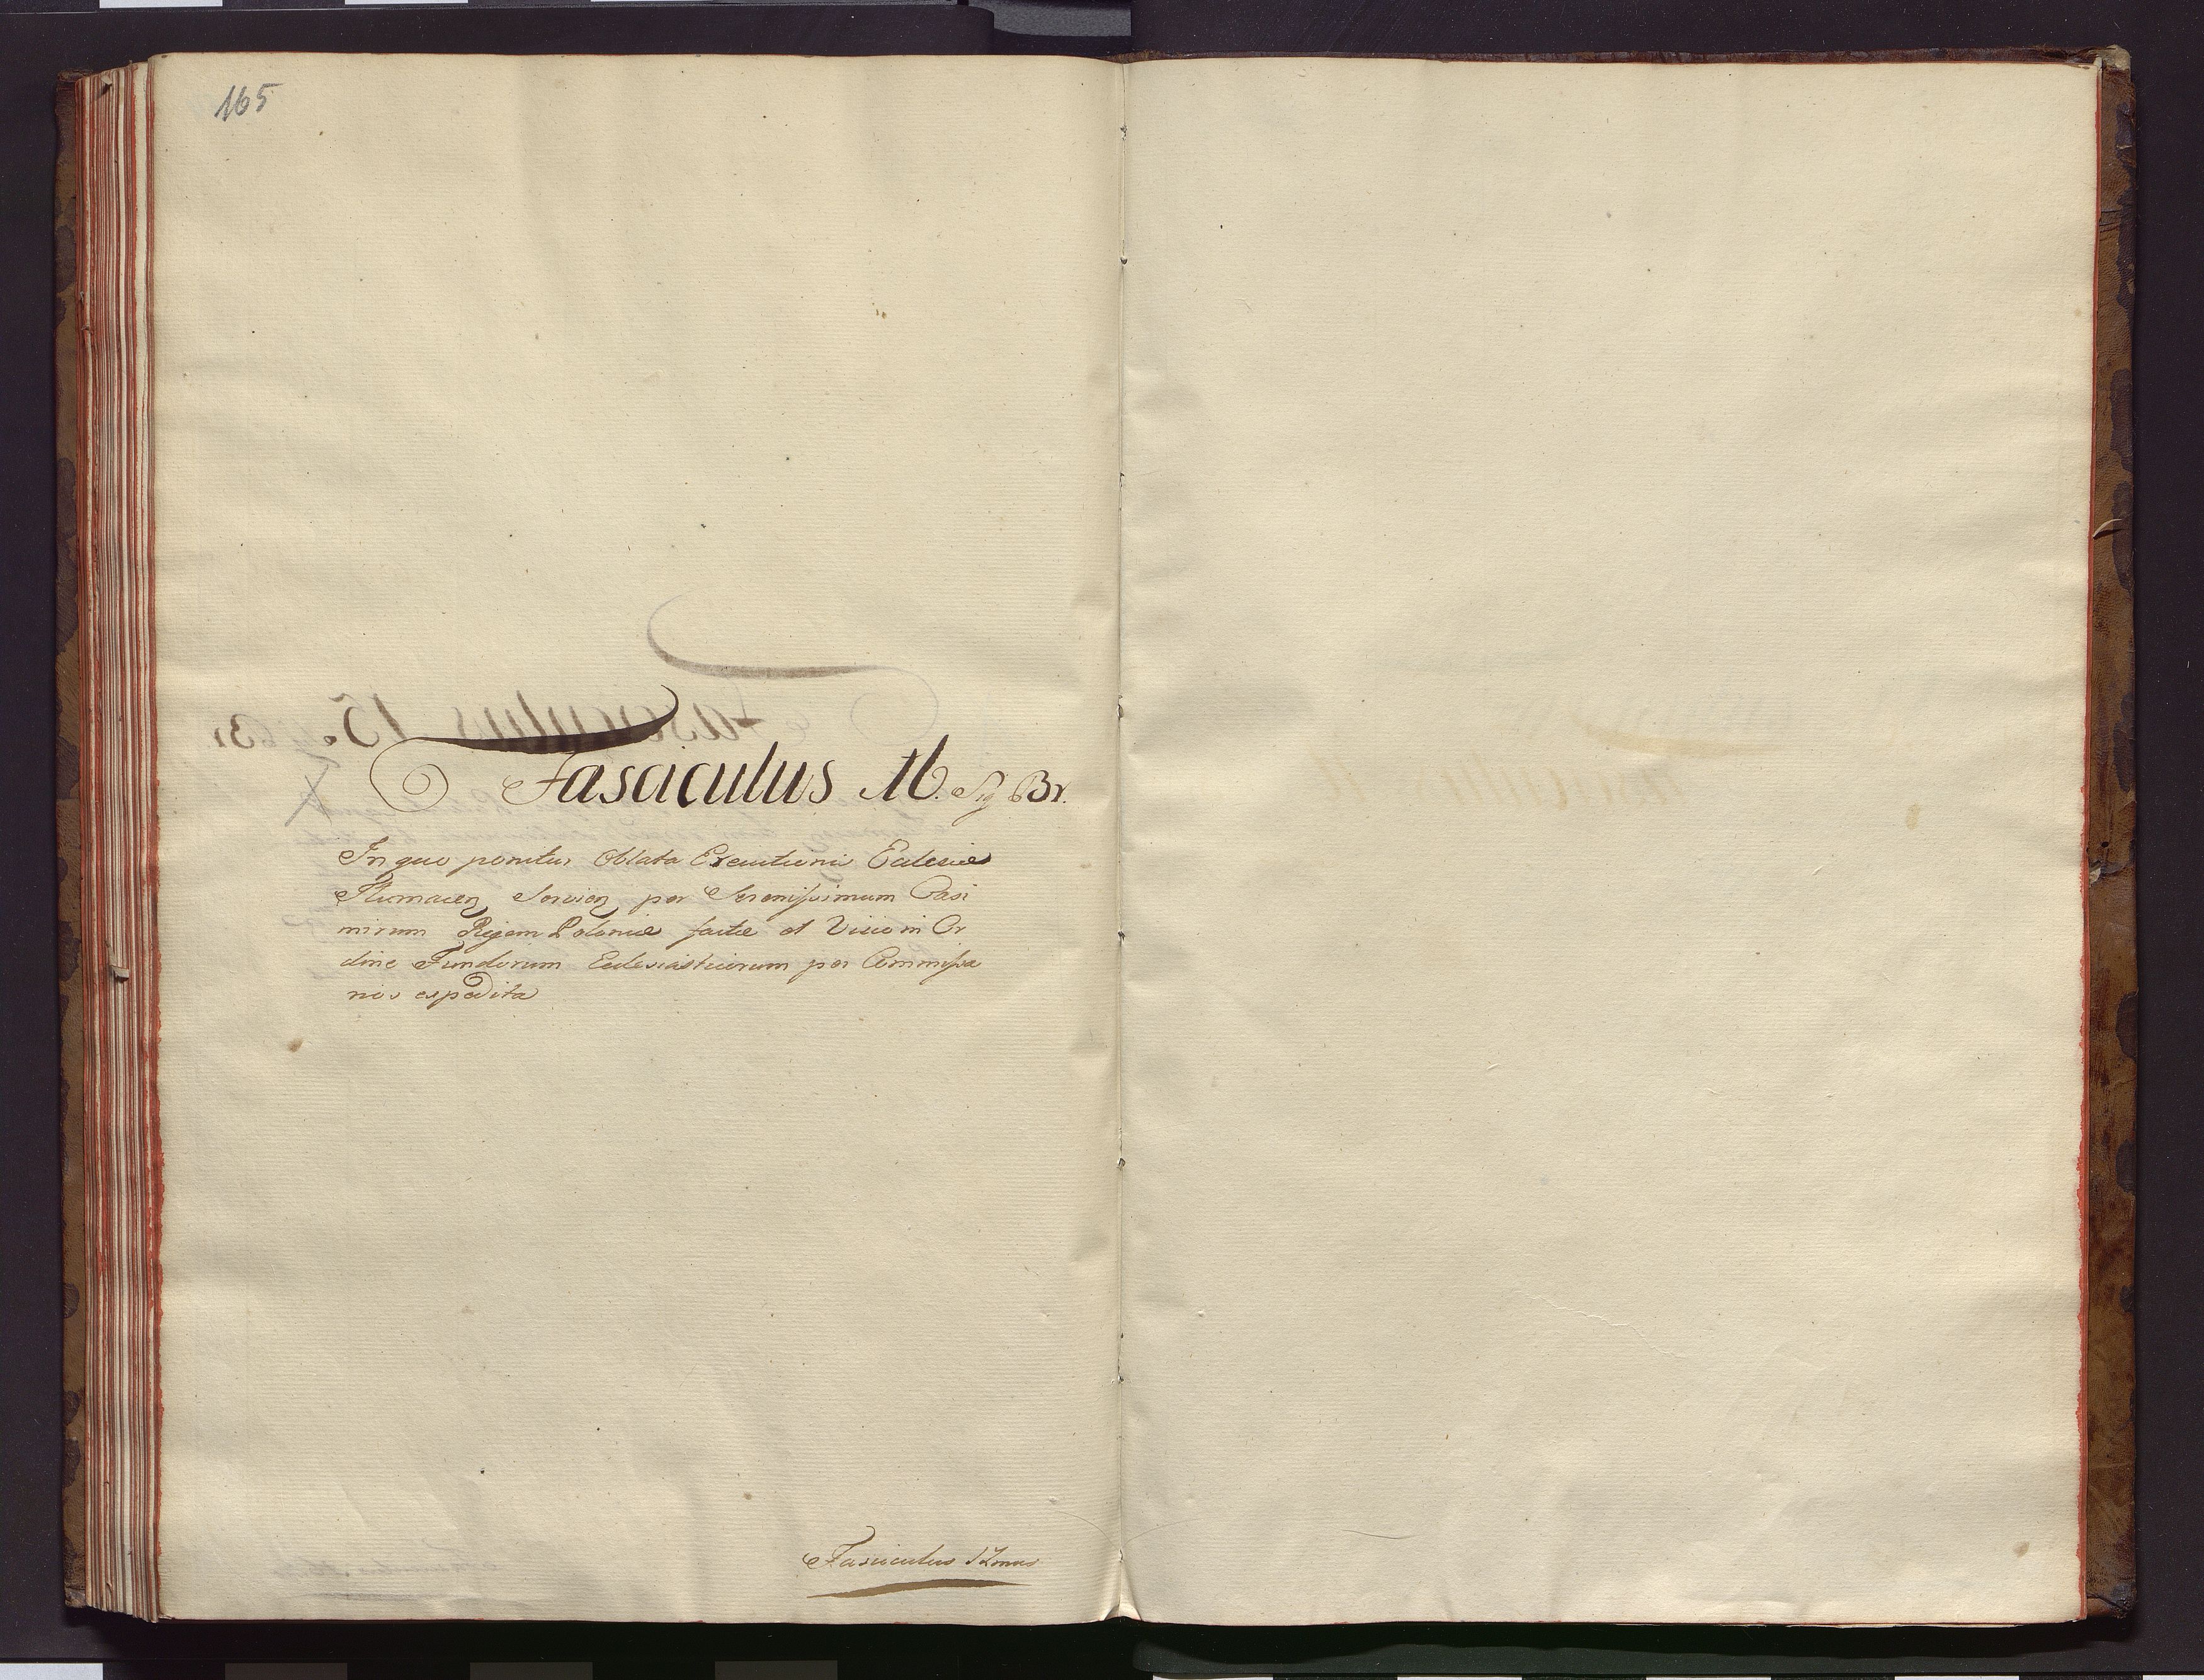 165
Fasciculus 16. Sig Br.
In quo ponitur Oblata Erectionis Ecclesiæ
per Serenissimum Casi
mirum Regem Poloniæ factæ et Visio in Or
dine Fundorum Ecclesiasticorum per Commissa
rios expedita
Fasciculus 17mus